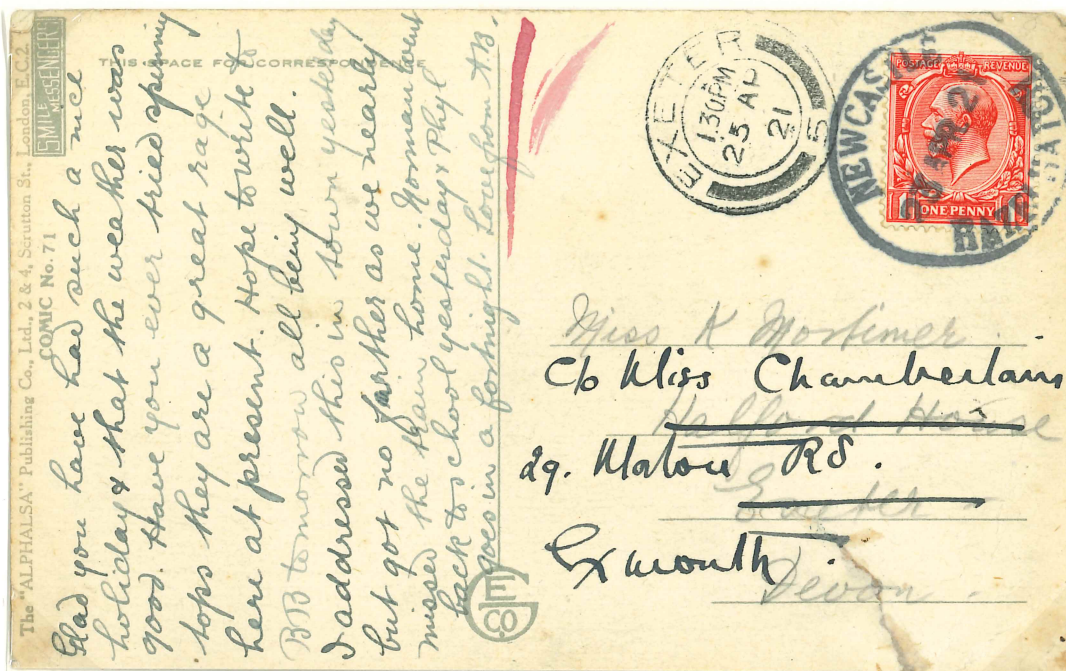 The "ALPHALSA" Publishing Co., Ltd., 2 & 4, Scrutton St., London, E.C.2.
COMIC No. 71
SMILE MESSENGERS
THIS SPACE FOR CORRESPONDENCE
Glad you have had such a nice
holiday & that the weather was
good. Have you ever tried spinning
tops they are a great rage
here at present. Hope to write to
BB tomorrow all being well.
I addressed this in town yesterday
but got no farther as we nearly
missed the tram home. Norman went
back to school yesterday & Phyl
goes in a fortnight. Love from
EXETER
1 30 PM
25 AP
21
5
NEWCASTLE
APR 21
POSTAGE REVENUE
ONE PENNY
Miss K Mortimer
C/o Miss Chamberlain
House
29. Rd.
Exeter
Exmouth.
Devon